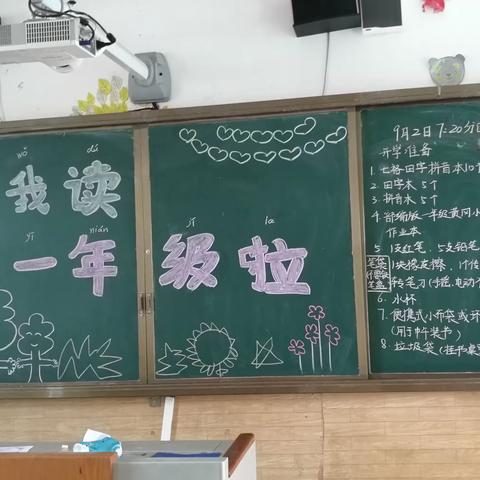 wǒ dú
我读
yī nián jí la
一年级拉
9月2日7:20分
开学准备
1. 七格田字拼音本10个
2. 田字本 5个
3. 拼音本 5个
4. 部编版一年级黄冈小
作业本
5. 1支红笔, 5支铅笔
笔袋
1块橡皮擦, 1个
笔盒
转笔刀(手摇,电动
6. 水杯
7. 便携式小布袋或环
(用于中午装书)
8. 垃圾袋(挂书桌